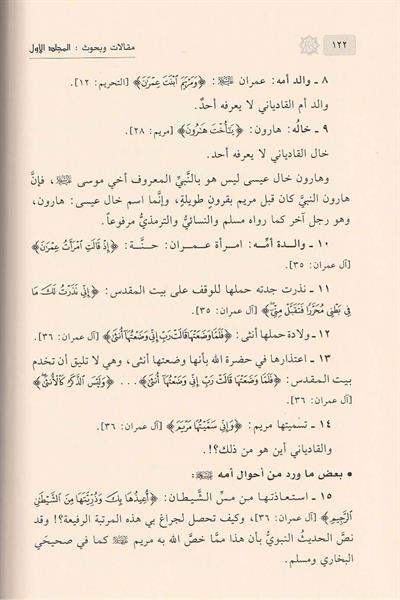 ١٢٢ مقالات وبحوث : المجلد الأول
٨ ـ والد أمه: عمران ﷺ: ﴿وَمَرْيَمَ ابْنَتَ عِمْرَانَ﴾ [التحريم: ١٢].
والد أم القادياني لا يعرفه أحدٌ.
٩ ـ خالُه: هارون: ﴿يَا أُخْتَ هَارُونَ﴾ [مريم: ٢٨].
خال القادياني لا يعرفه أحد.
وهارون خال عيسى ليس هو بالنَّبيِّ المعروف أخي موسى ﷺ، فإنَّ
هارون النبيَّ كان قبل مريم بقرونٍ طويلةٍ، وإنَّما اسم خال عيسى: هارون،
وهو رجل آخر كما رواه مسلم والنسائيُّ والترمذيُّ مرفوعاً.
١٠ ـ والدة أمِّه: امرأة عمران: حنَّة: ﴿إِذْ قَالَتِ امْرَأَتُ عِمْرَانَ﴾
[آل عمران: ٣٥].
١١ ـ نذرت جدته حملها للوقف على بيت المقدس: ﴿إِنِّي نَذَرْتُ لَكَ مَا
فِي بَطْنِي مُحَرَّرًا فَتَقَبَّلْ مِنِّي﴾ [آل عمران: ٣٥].
١٢ ـ ولادة حملها أنثى: ﴿فَلَمَّا وَضَعَتْهَا قَالَتْ رَبِّ إِنِّي وَضَعْتُهَا أُنْثَى﴾
١٣ ـ اعتذارها في حضرة الله بأنها وضعتها أنثى، وهي لا تليق أن تخدم
بيت المقدس: ﴿فَلَمَّا وَضَعَتْهَا قَالَتْ رَبِّ إِنِّي وَضَعْتُهَا أُنْثَى﴾ . . . ﴿وَلَيْسَ الذَّكَرُ كَالْأُنْثَى﴾
[آل عمران: ٣٦].
١٤ ـ تسميتها مريم: ﴿وَإِنِّي سَمَّيْتُهَا مَرْيَمَ﴾ [آل عمران: ٣٦].
والقادياني أين هو من ذلك؟!.
• بعض ما ورد من أحوال أمه ﷺ:
١٥ ـ استعاذتها من مسِّ الشَّيطان: ﴿أُعِيذُهَا بِكَ وَذُرِّيَّتَهَا مِنَ الشَّيْطَانِ
الرَّجِيمِ﴾ [آل عمران: ٣٦]، وكيف تحصل لجراغ بي هذه المرتبة الرفيعة؟! وقد
نصَّ الحديثُ النبويُّ بأن هذا ممَّا خصَّ الله به مريم ﷺ كما في صحيحَي
البخاري ومسلم.